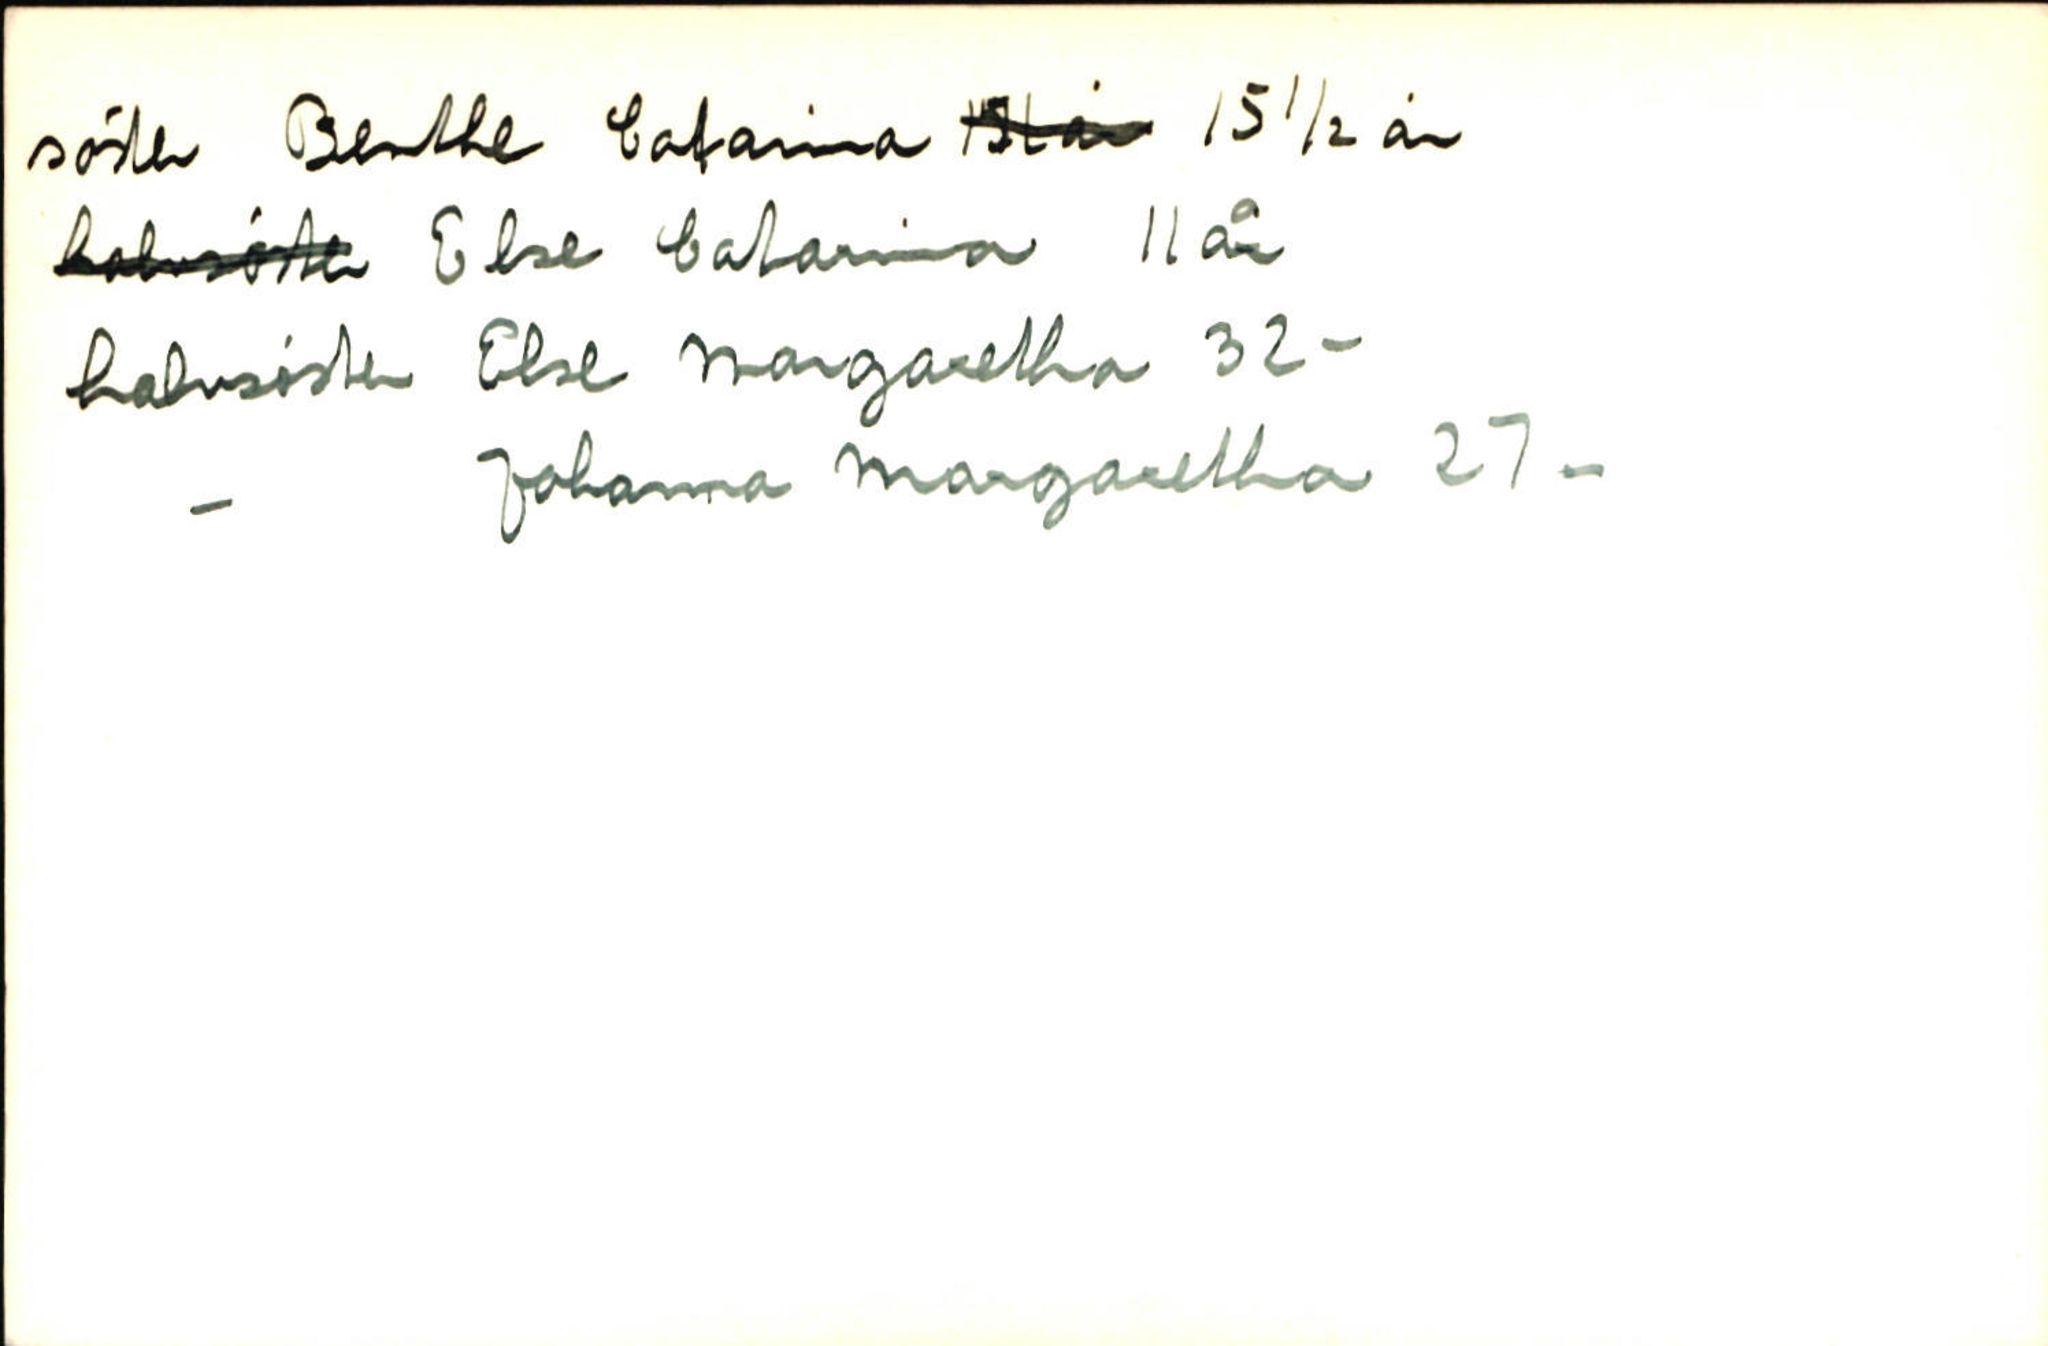 söster Benthe Catarina 15 1/2 år
halvsøster Else Catarina 11 år
halvsøster Else Margaretha 32 -
- Johanna Margaretha 27 -